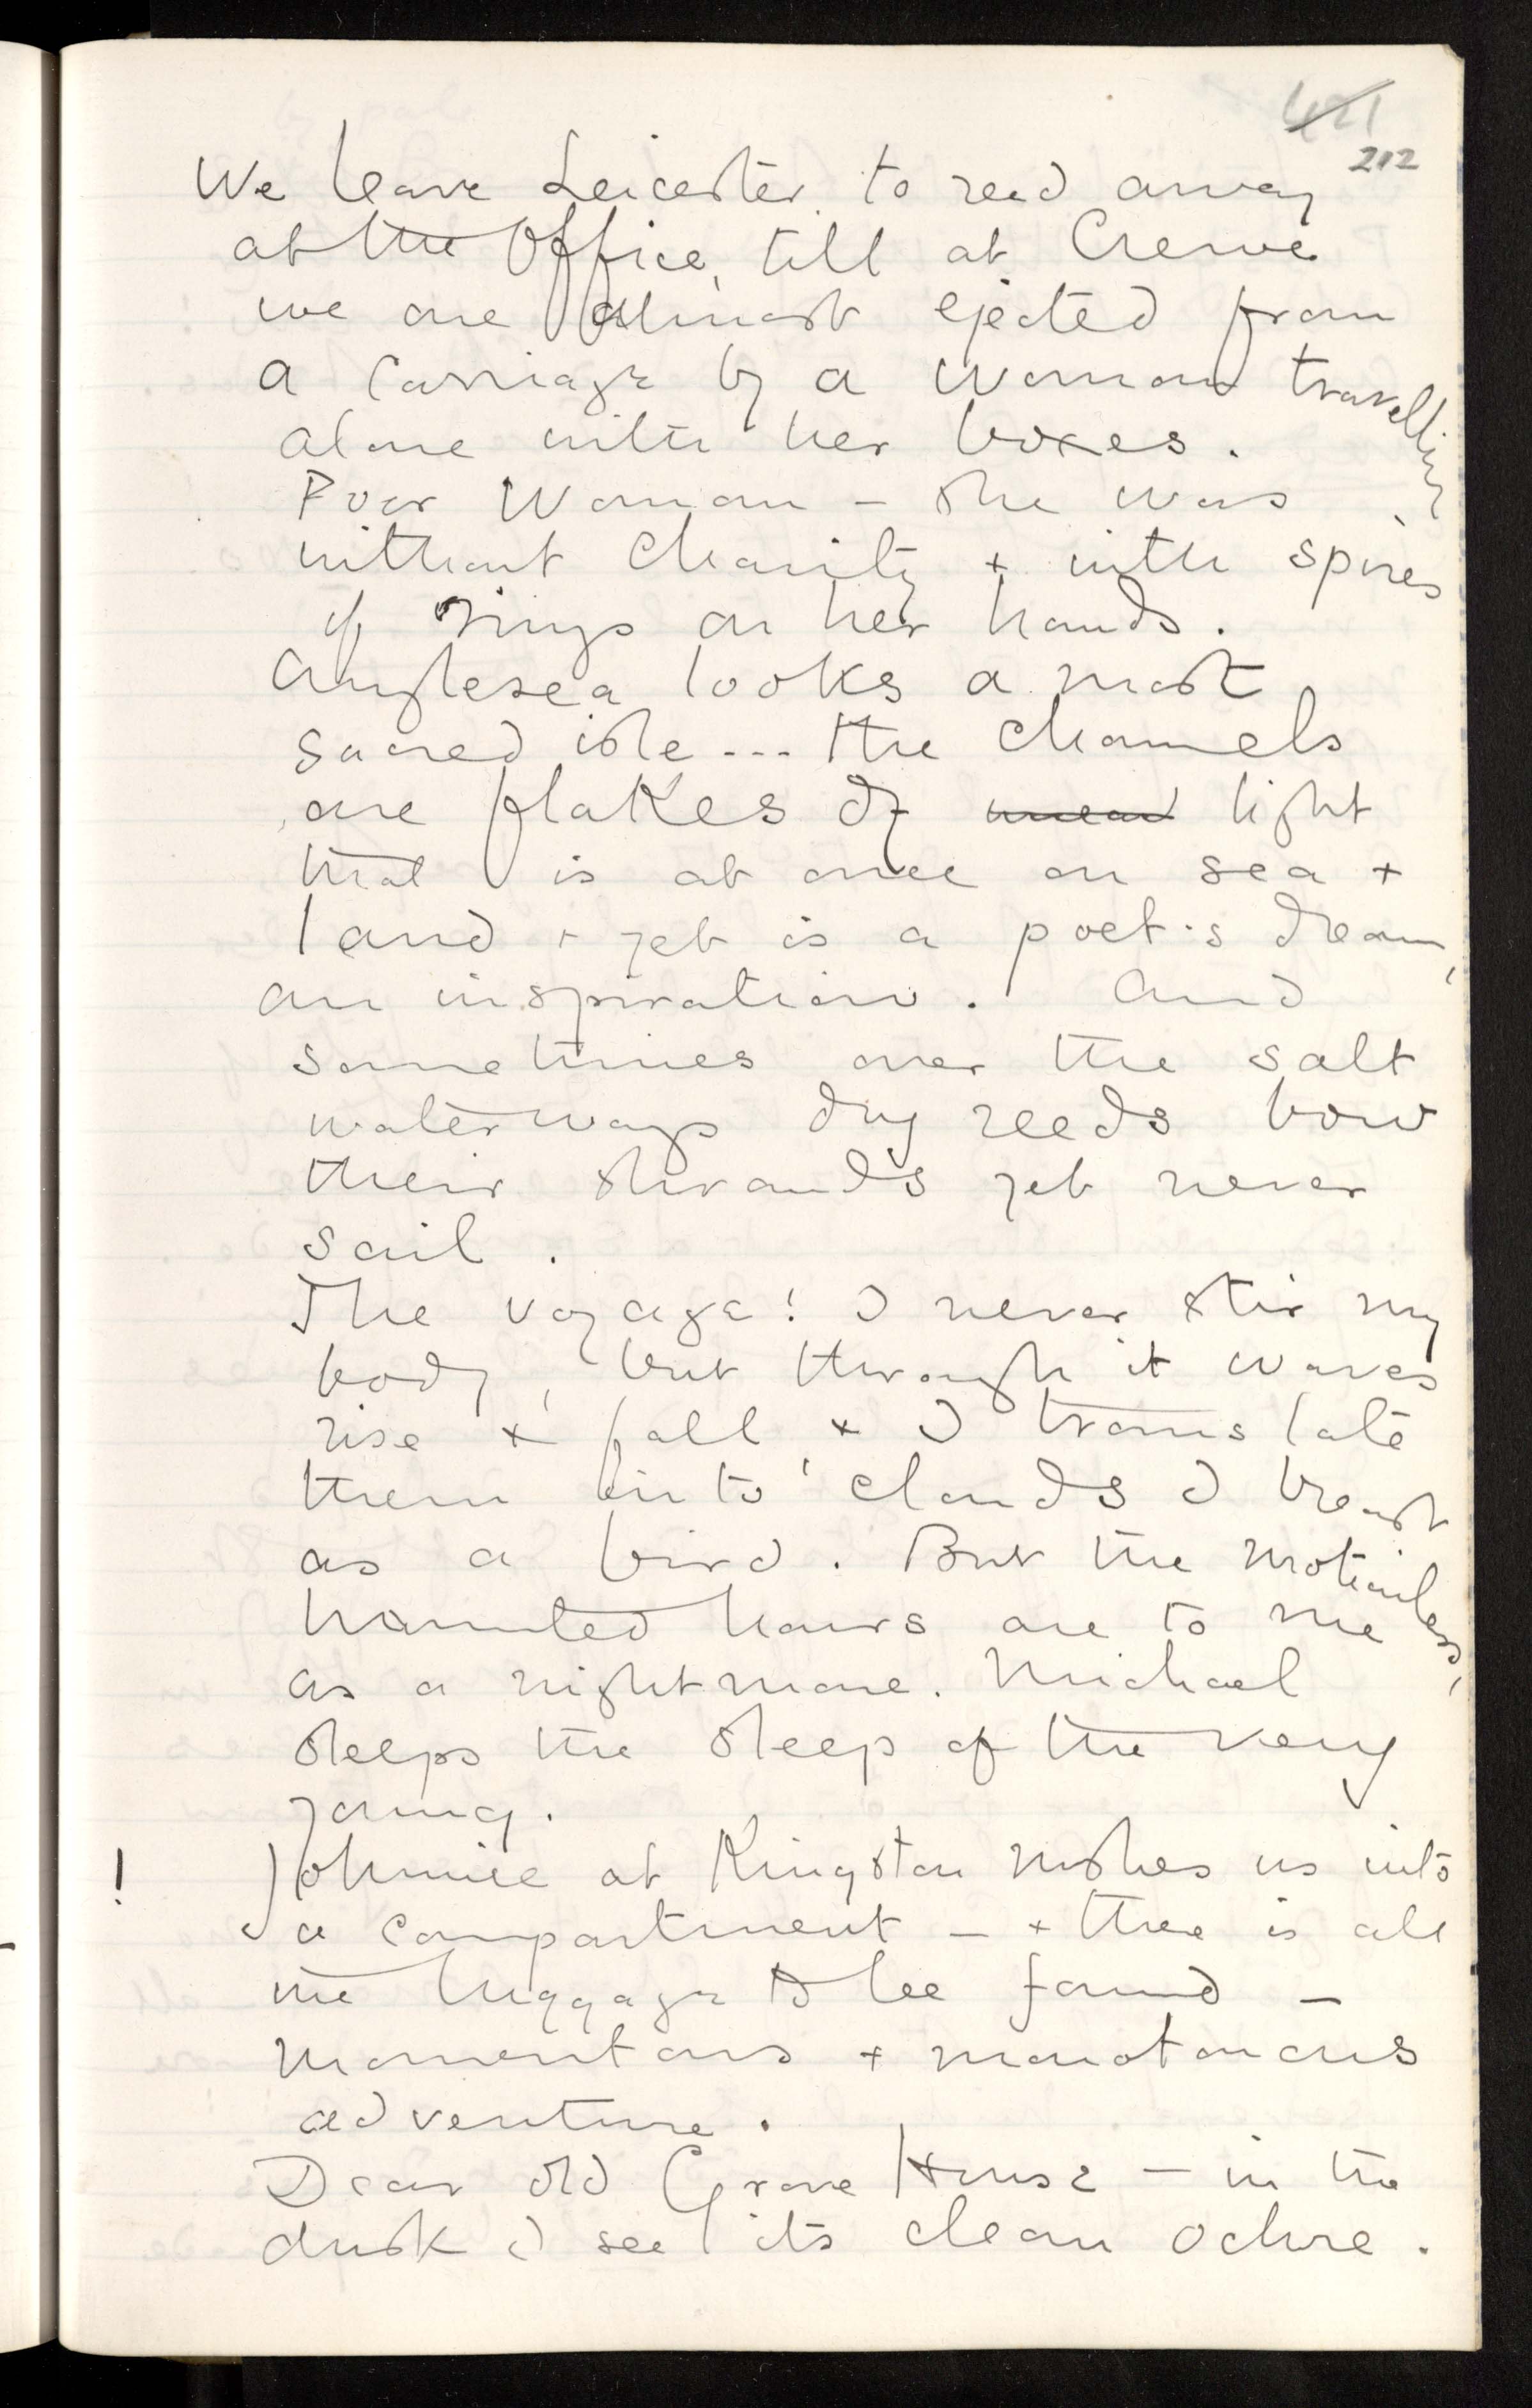 421
212
We leave Leicester, to read away
at the Office, till at Crewe
we are almost ejected from
a carriage by a woman travelling
alone with her boxes.
Poor Woman – she was
without charity + with spires
of rings on her hands.
Anglesea looks a most
sacred isle... the channels
are flakes of light
that is at once on sea +
land + yet is a poet's dream,
an inspiration. And
sometimes over the salt
waterways dry reeds bow
their strands yet never
sail.
The voyage! I never stir my
body, but through it waves
rise + fall, + I translate
them into clouds I breast
as a bird. But the motionless,
haunted hours are to me
as a nightmare. Michael
sleeps the sleep of the very
young.
! Johnnie at Kingston rushes us into
a compartment – + there is all
the luggage to be found –
momentous + monotonous
adventure.
Dear old Grove House – in the
dusk I see its clean ochre.